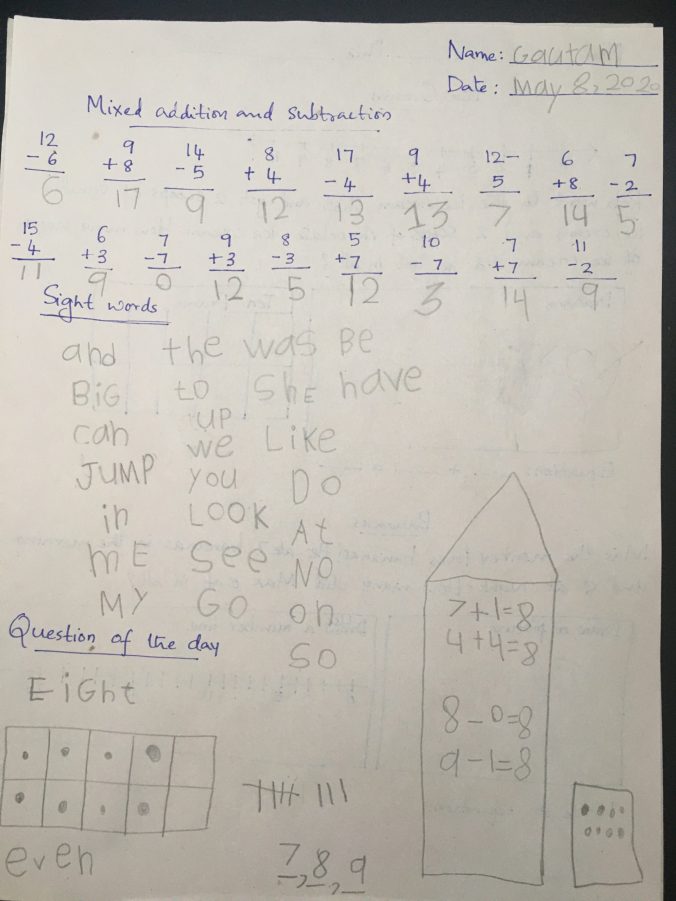 Name: Gautam
Date: May 8, 2020
Mixed addition and subtraction
12 9 14 8 17 9 12- 6 7
- 6 + 8 - 5 + 4 - 4 +4 5 +8 -2
6 17 9 12 13 13 7 14 5
15 6 7 9 8 5 10 7 11
- 4 +3 -7 +3 -3 +7 - 7 +7 -2
11 9 0 12 5 12 3 14 9
Sight words
and the was BE
BiG to ShE have
can UP
we Like
JUMP you DO
in LOOK At
mE See NO
MY GO on
SO
7+1=8
4+4=8
8-0=8
9-1=8
Question of the day
EiGht
even
7, 8, 9